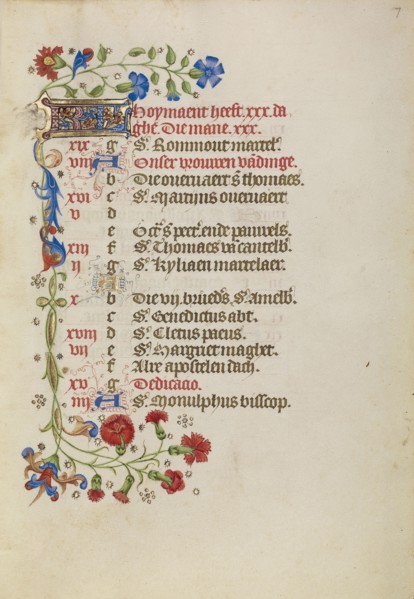 7
Hoymaent heeft .xxx. da
ghe. Die mane .xxx.
xix g S. Rommout martel.
viii A Onser vrouwen vadinge.
b Die overvaert S. thomaes.
xvi c S. Martinis overvaert
v d
e Oct. S. peet. ende pauwels.
xiii f S. Thomaes va cantelb.
ii g S. Kyliaen martelaer.
A
x b Die vii. brueds. S. Amelb.
c S. Benedictus abt.
xviii d S. Cletus paeus.
vii e S. Margriet maghet.
f Alre apostelen dach.
xv g Dedicacio.
iiii A S. Monulphus bisscop.